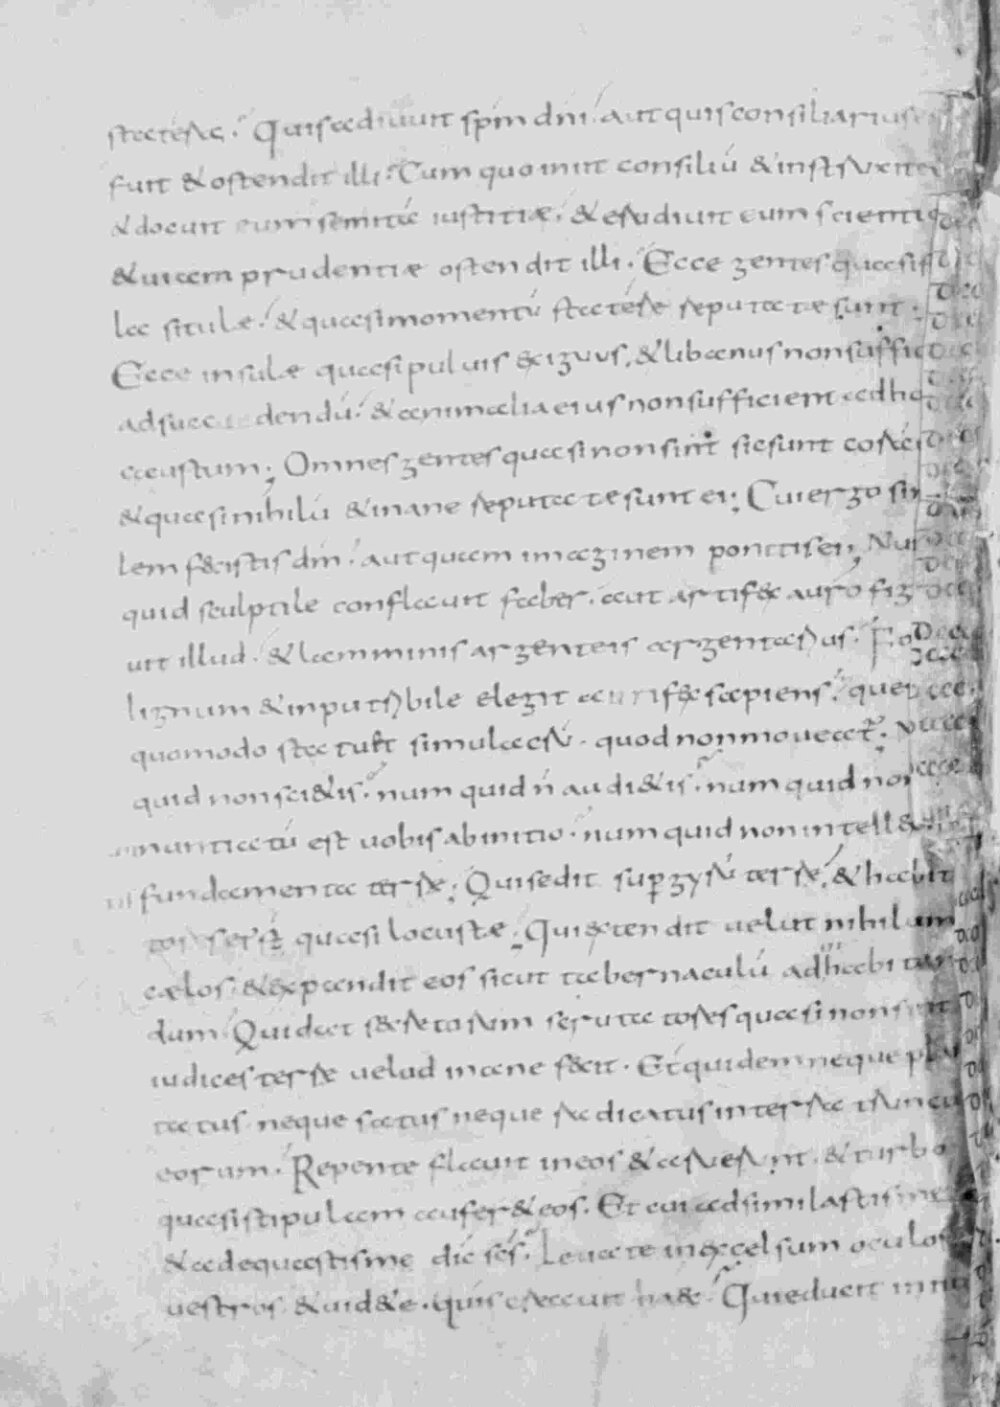 statera. Quis adiuuit spm dni. aut quis consiliarius
fuit & ostendit illi. Cum quo iniit consiliu & instruxit
& docuit eum semita iustitiæ. & erudiuit eum scientia
& uiam prudentiæ ostendit illi. Ecce gentes quasi
la situlæ. & quasi momentu staterae reputatæ sunt.
Ecce insulæ quasi puluis exiguus. & libanus non
ad dendu. & animalia eius non sufficient ad
caustum; Omnes gentes quasi non sint sic sunt
& quasi nihilu & inane reputatae sunt ei; Cui ergo
lem fecistis dm. aut quam imaginem ponetis ei;
quid sculptile conflauit faber. aut artifex auro
uit illud. & lamminis argenteis argentarius.
lignum & inputribile elegit artifex sapiens.
quomodo statuat simulacru. quod non moueat.
quid non scietis. num quid n audietis. num quid
nuntiatu est uobis ab initio. num quid non
fundamenta terræ; Qui sedit sup gyru terræ. &
quasi locustæ; Qui extendit uelut nihilum
cælos. & expandit eos sicut tabernaculu ad
dum. Qui dat secretorum scrutatores quasi non
iudices terræ uelud inane fecit. Et quidem neque
tatus neque satus neque radicatus in terra
eorum. Repente flauit in eos & aruerunt. & turbo
quasi stipulam auferet eos. Et cui adsimilastis
& adequastis me dic scs. Leuate in excelsum oculos
uestros. & uidete. quis creauit hæc. Qui educit in